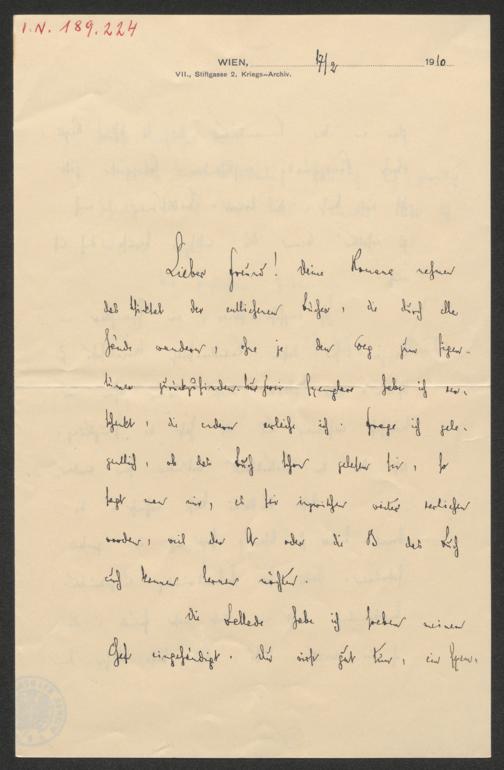 I.N. 189.224
WIEN, 17/2 1910
VII., Stiftgasse 2, Kriegs-Archiv.
Lieber Freund! Deine Romane nehmen
das Schicksal der entliehenen Bücher, die durch alle
Hände wandern, ohne je den Weg zum Eigen-
tümer zurückzufinden. Exemplare habe ich ver-
schenkt, die anderen verleihe ich. Frage ich gele-
gentlich, ob das Buch schon gelesen sei, so
sagt man mir, es sei inzwischen weiter verliehen
worden, weil der A oder die B das Buch
auch kennen lernen möchten.
Die Ballade habe ich soeben meinem
Chef eingehändigt. Du wirst gut tun, ein Exem-